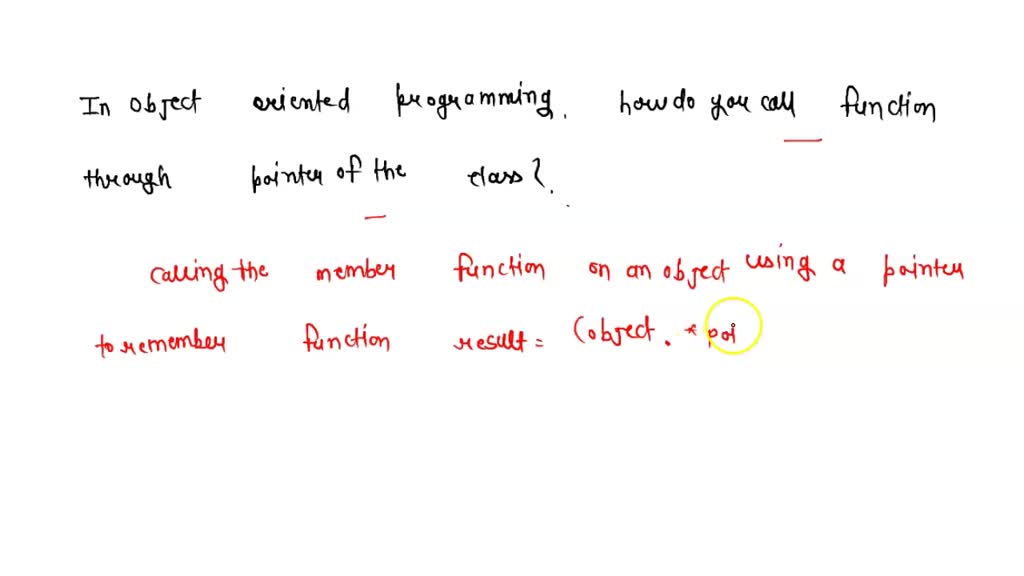 In object oriented programming. how do you call function
through pointer of the class?.
calling the member function on an object using a pointer
to remember function result = (object. * poi